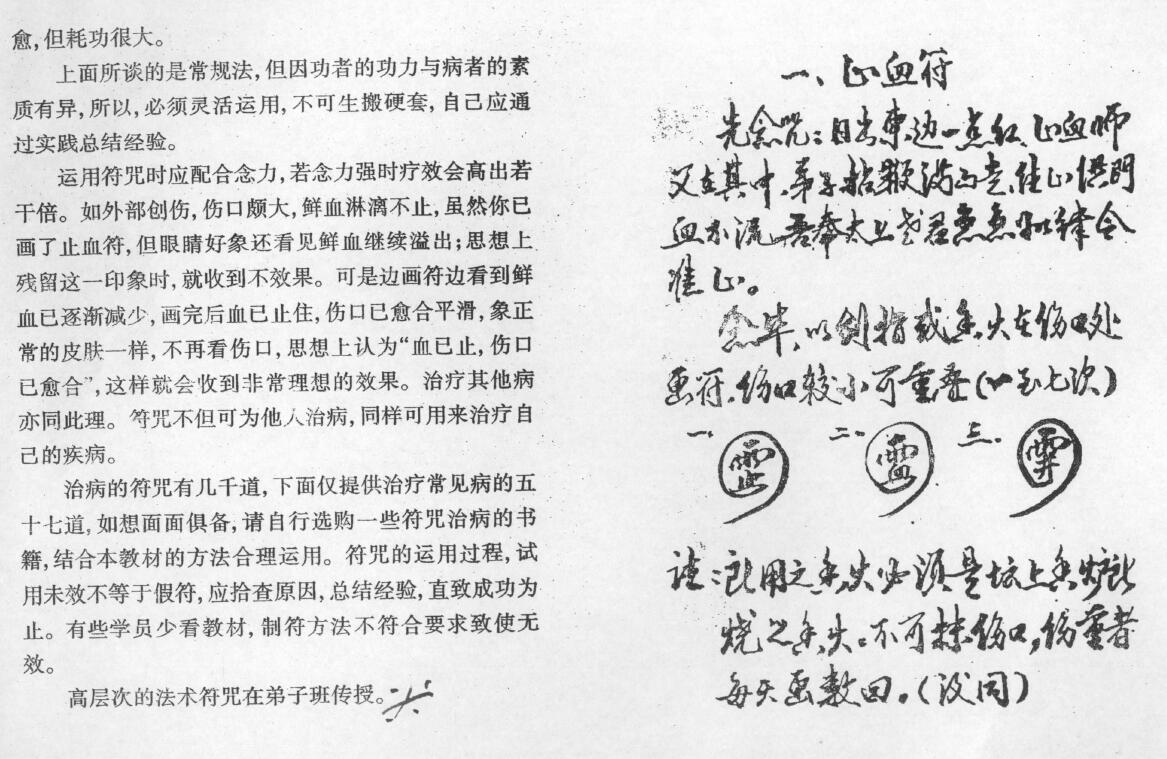 愈,但耗功很大。
上面所谈的是常规法,但因功者的功力与病者的素
质有异,所以,必须灵活运用,不可生搬硬套,自己应通
过实践总结经验。
运用符咒时应配合念力,若念力强时疗效会高出若
干倍。如外部创伤,伤口颇大,鲜血淋漓不止,虽然你已
画了止血符,但眼睛好象还看见鲜血继续溢出;思想上
残留这一印象时,就收到不效果。可是边画符边看到鲜
血已逐渐减少,画完后血已止住,伤口已愈合平滑,象正
常的皮肤一样,不再看伤口,思想上认为“血已止,伤口
已愈合”,这样就会收到非常理想的效果。治疗其他病
亦同此理。符咒不但可为他人治病,同样可用来治疗自
己的疾病。
治病的符咒有几千道,下面仅提供治疗常见病的五
十七道,如想面面俱备,请自行选购一些符咒治病的书
籍,结合本教材的方法合理运用。符咒的运用过程,试
用未效不等于假符,应拾查原因,总结经验,直致成功为
止。有些学员少看教材,制符方法不符合要求致使无
效。
高层次的法术符咒在弟子班传授。
一、止血符
先念咒:日出东边一点红,止血师
又在其中,弟子
血不流,吾奉太上老君急急如律令
准止。
念毕,以剑指或香火在伤口处
画符,伤口较小可重叠(以至七次)
一、 二、 三、
注:所用之香火必须是坛上香炉所
烧之香火。不可抹伤口,伤重者
每天画数回。(没同)